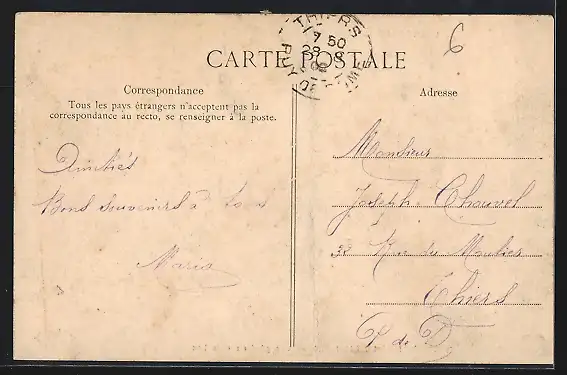 CARTE POSTALE
THIERS
7 50
28 8
PUY DE DOME
6
Correspondance
Tous les pays étrangers n'acceptent pas la
correspondance au recto, se renseigner à la poste.
Amitiés
Bons souvenirs à tous
Maria
Adresse
Monsieur
Joseph Chauvel
Rue du Moulier
Thiers
P de D